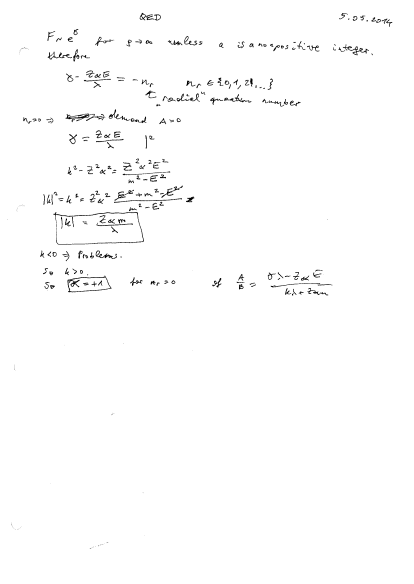 QED 5.05.2014
F ~ e^ρ for ρ→∞ unless a is a nonpositive integer.
therefore
γ - ZαE/λ = -n_r n_r ∈ {0,1,2,...}
"radial" quantum number
n_r=0 ⇒ demand A=0
γ = ZαE/λ |²
k² - Z²α² = Z²α²E²/(m²-E²)
|k|² = k² = Z²α² (E²+m²-E²)/(m²-E²)
|k| = Zαm/λ
k<0 ⇒ Problems.
So k>0.
So = +1 for n_r=0 if A/B = (γλ - ZαE)/(kλ + Zαm)